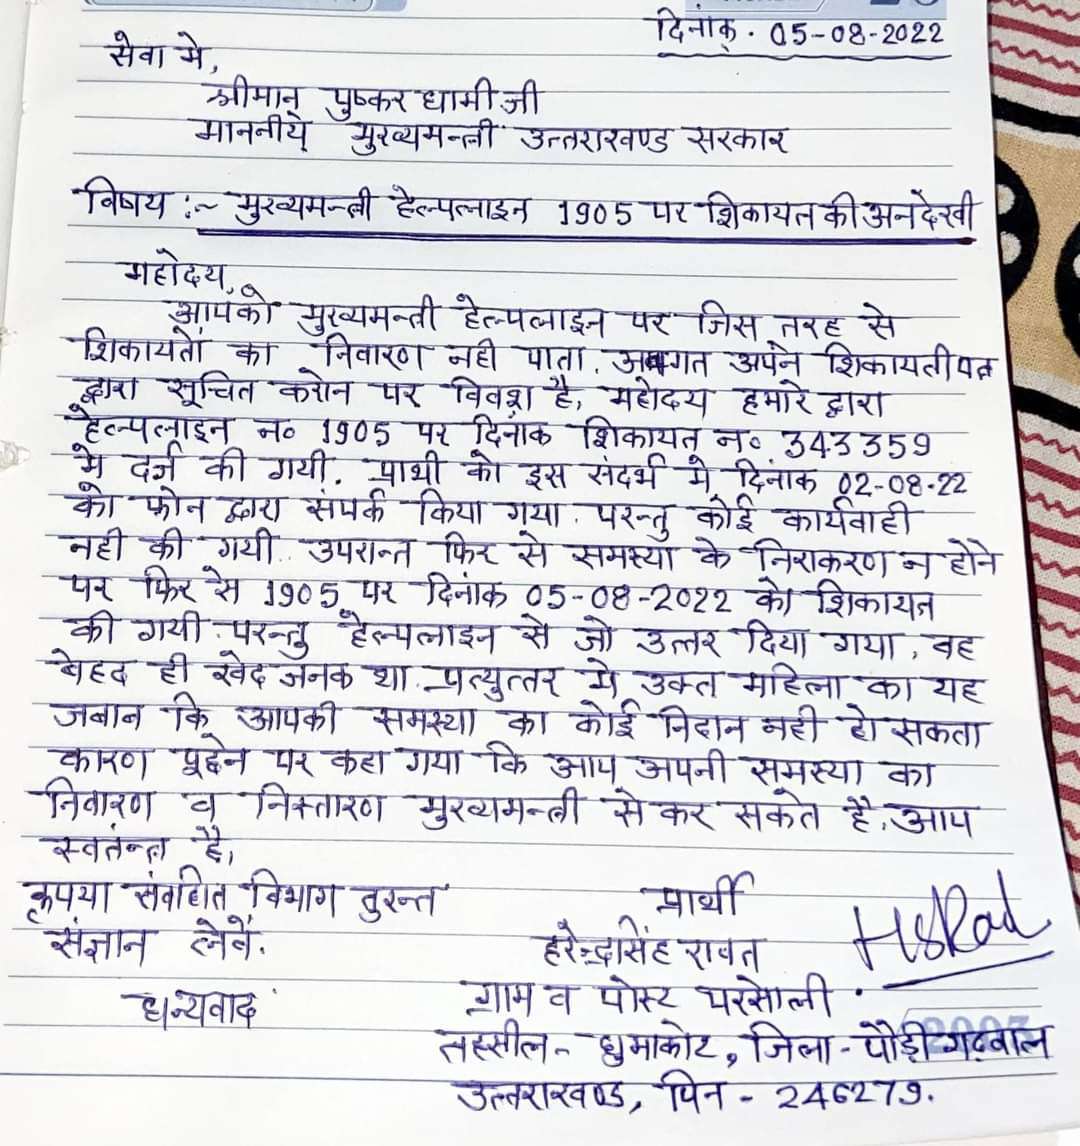 दिनांक. 05-08-2022
सेवा मे,
श्रीमान् पुष्कर धामी जी
माननीये मुख्यमन्त्री उत्तराखण्ड सरकार
विषय :~ मुख्यमन्त्री हेल्पलाइन 1905 पर शिकायत की अनदेखी
महोदय,
आपको मुख्यमन्त्री हेल्पलाइन पर जिस तरह से
शिकायतों का निवारण नही पाता. अवगत अपने शिकायती पत्र
द्वारा सूचित करोन पर विवश है, महोदय हमारे द्वारा
हेल्पलाइन न० 1905 पर दिनांक शिकायत न० 343359
मे दर्ज की गयी. प्रार्थी को इस संदर्भ मे दिनांक 02-08-22
को फोन द्वारा संपर्क किया गया. परन्तु कोई कार्यवाही
नही की गयी. उपरान्त फिर से समस्या के निराकरण न होने
पर फिर से 1905 पर दिनांक 05-08-2022 को शिकायत
की गयी. परन्तु हेल्पलाइन से जो उत्तर दिया गया, वह
बेहद ही खेद जनक था. प्रत्युत्तर मे उक्त महिला का यह
जबान कि आपकी समस्या का कोई निदान नही हो सकता
कारण पूछेन पर कहा गया कि आप अपनी समस्या का
निवारण व निस्तारण मुख्यमन्त्री से कर सकते है, आप
स्वतंन्त्र है,
कृपया संबंधित विभाग तुरन्त
संज्ञान लेवें.
धन्यवाद
प्रार्थी
हरेन्द्रसिंह रावत
ग्राम व पोस्ट परसोली
तहसील- धुमाकोट, जिला- पौड़ी गढ़वाल
उत्तराखण्ड, पिन - 246279.